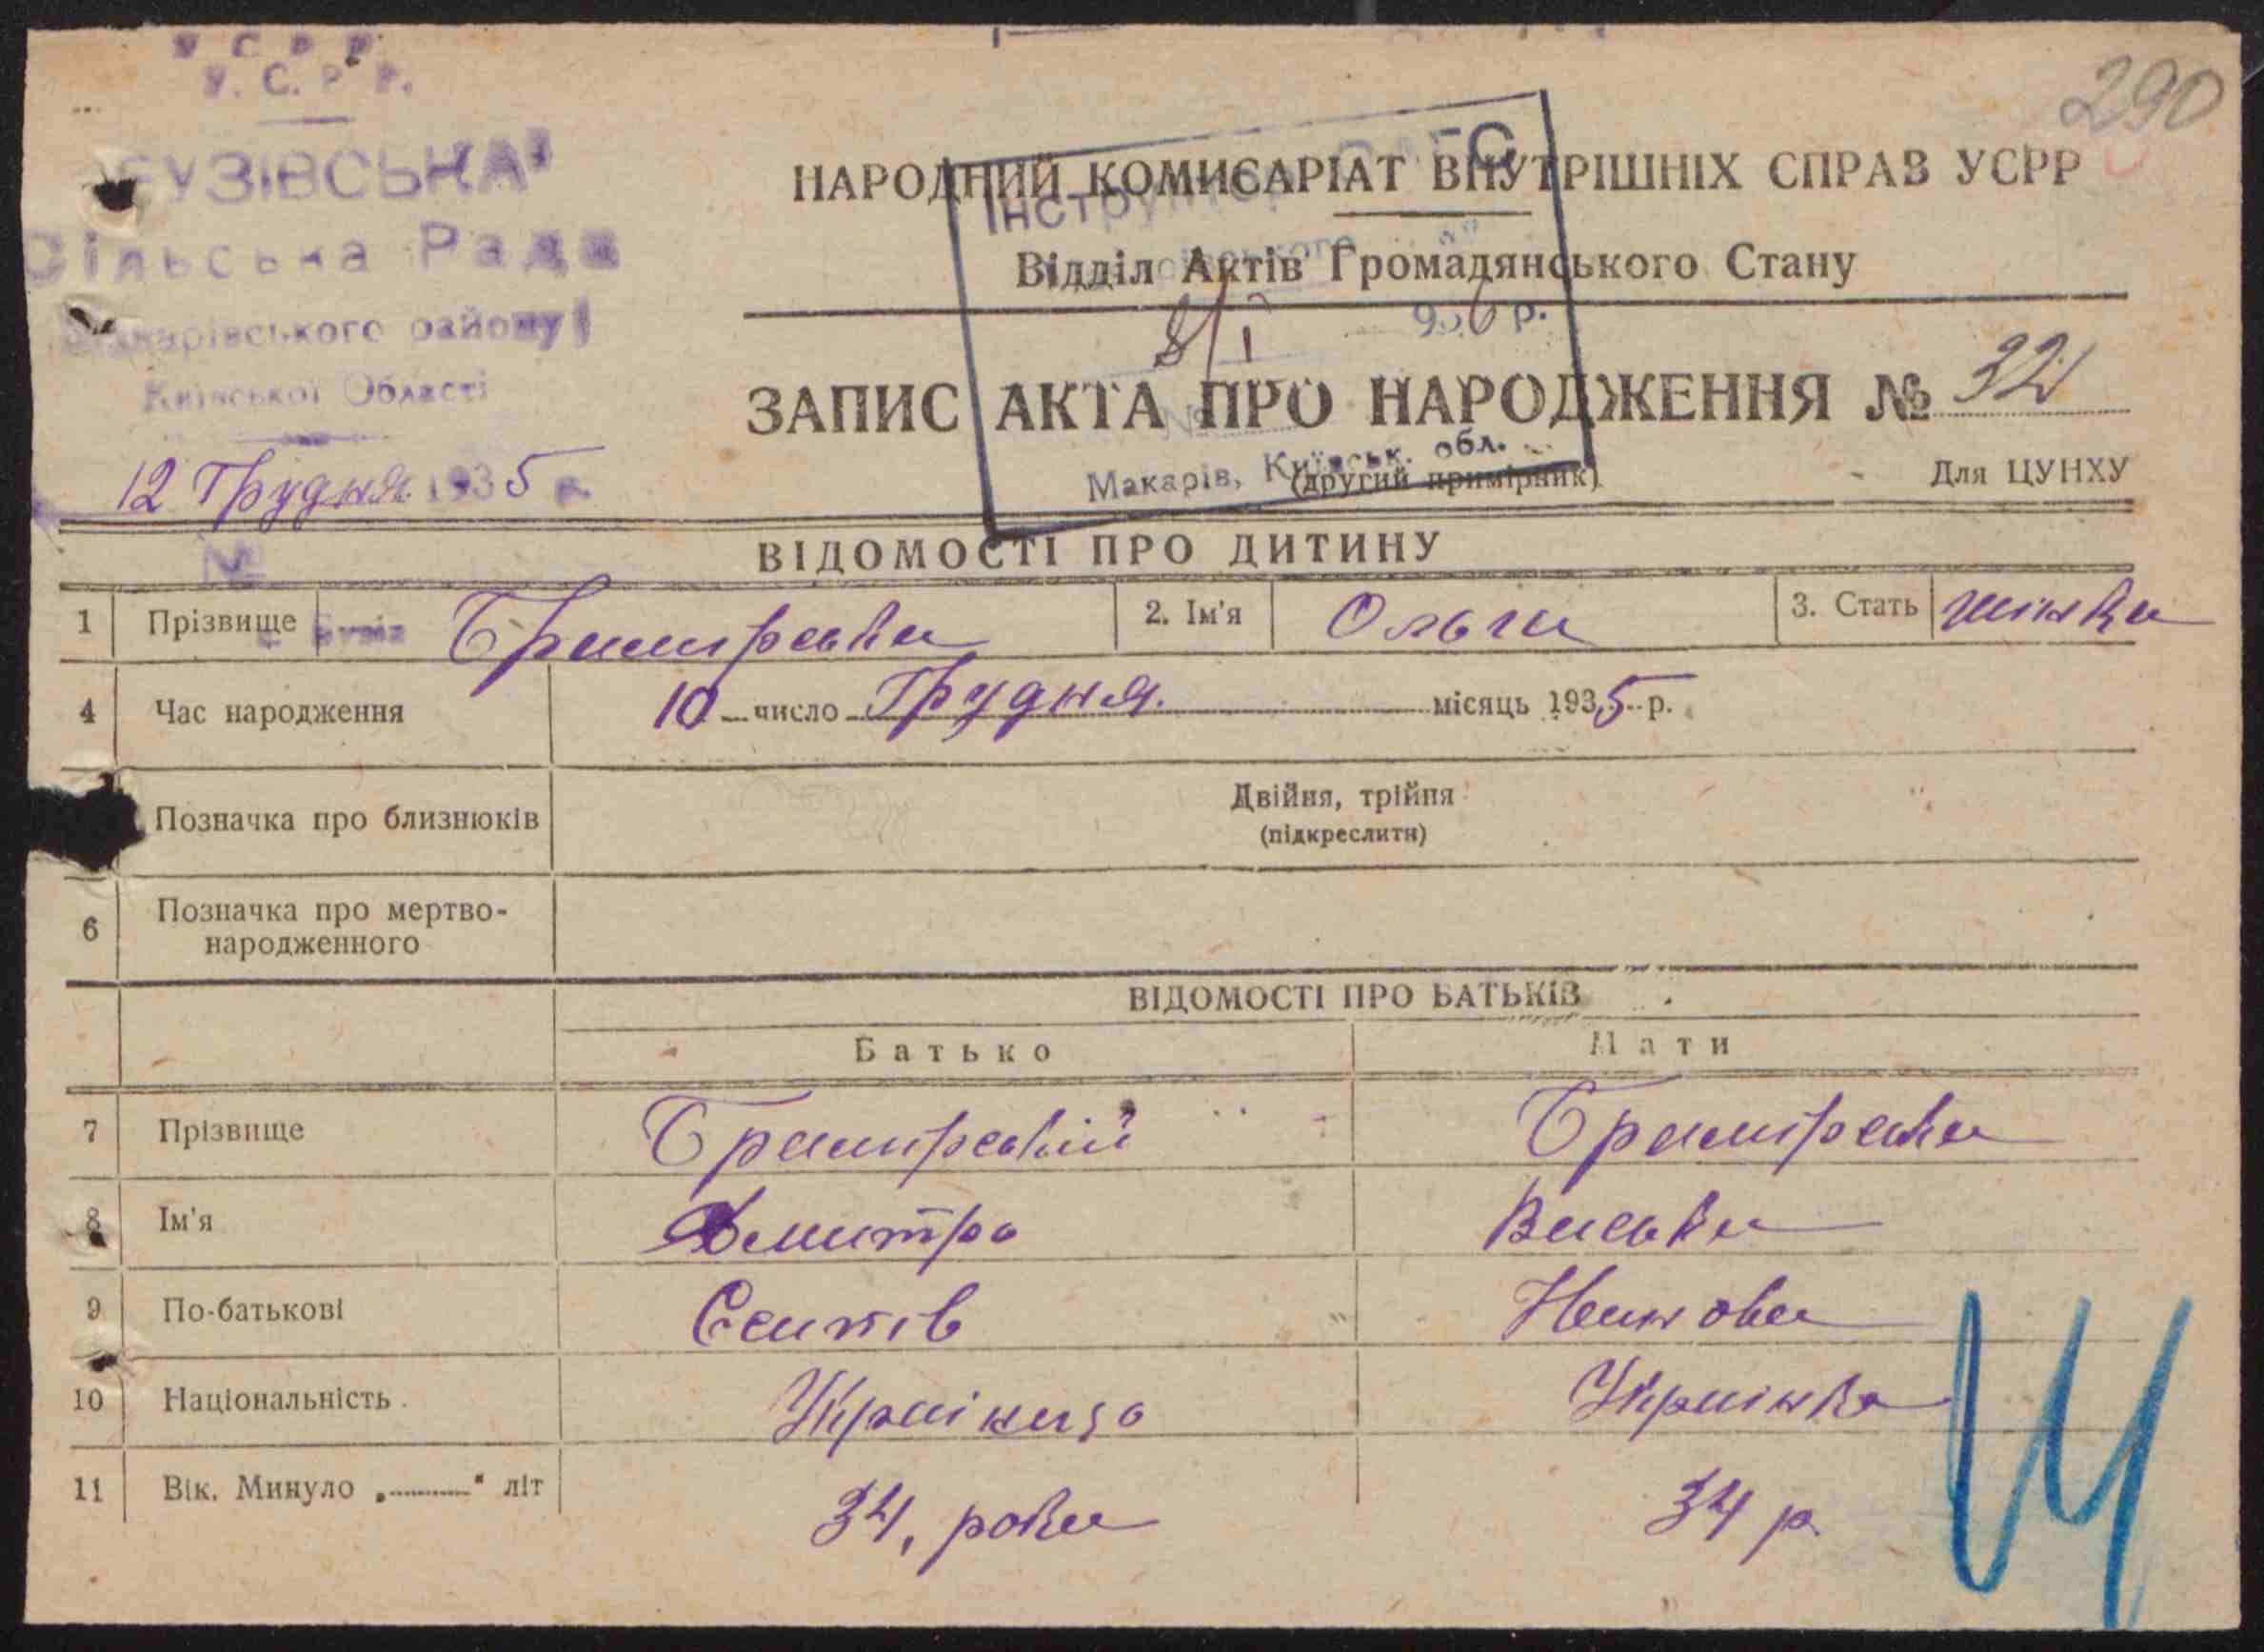 У.С.Р.Р.
У.С.Р.Р.
290
БУЗІВСЬКА
Сільська Рада
Макарівського району
Київської Області
12 Грудня 1935 р.
№
с. Бузів
НАРОДНИЙ КОМИСАРІАТ ВНУТРІШНІХ СПРАВ УСРР
Інструктор ЗАГС
Відділ Актів Громадянського Стану
8/I 1936 р.
ЗАПИС АКТА ПРО НАРОДЖЕННЯ №
№
Макарів, Київськ. обл.
(другий примірник)
Для ЦУНХУ
ВІДОМОСТІ ПРО ДИТИНУ
1 Прізвище 2. Ім'я Ольга 3. Стать жінка
4 Час народження 10 число Грудня місяць 1935 р.
Позначка про близнюків Двійня, трійня
(підкреслити)
6 Позначка про мертво-
народженного
ВІДОМОСТІ ПРО БАТЬКІВ
Батько Мати
7 Прізвище
8 Ім'я Дмитро
9 По-батькові
10 Національність Українець Українка
11 Вік. Минуло „ “ літ 34, роки 34 р.